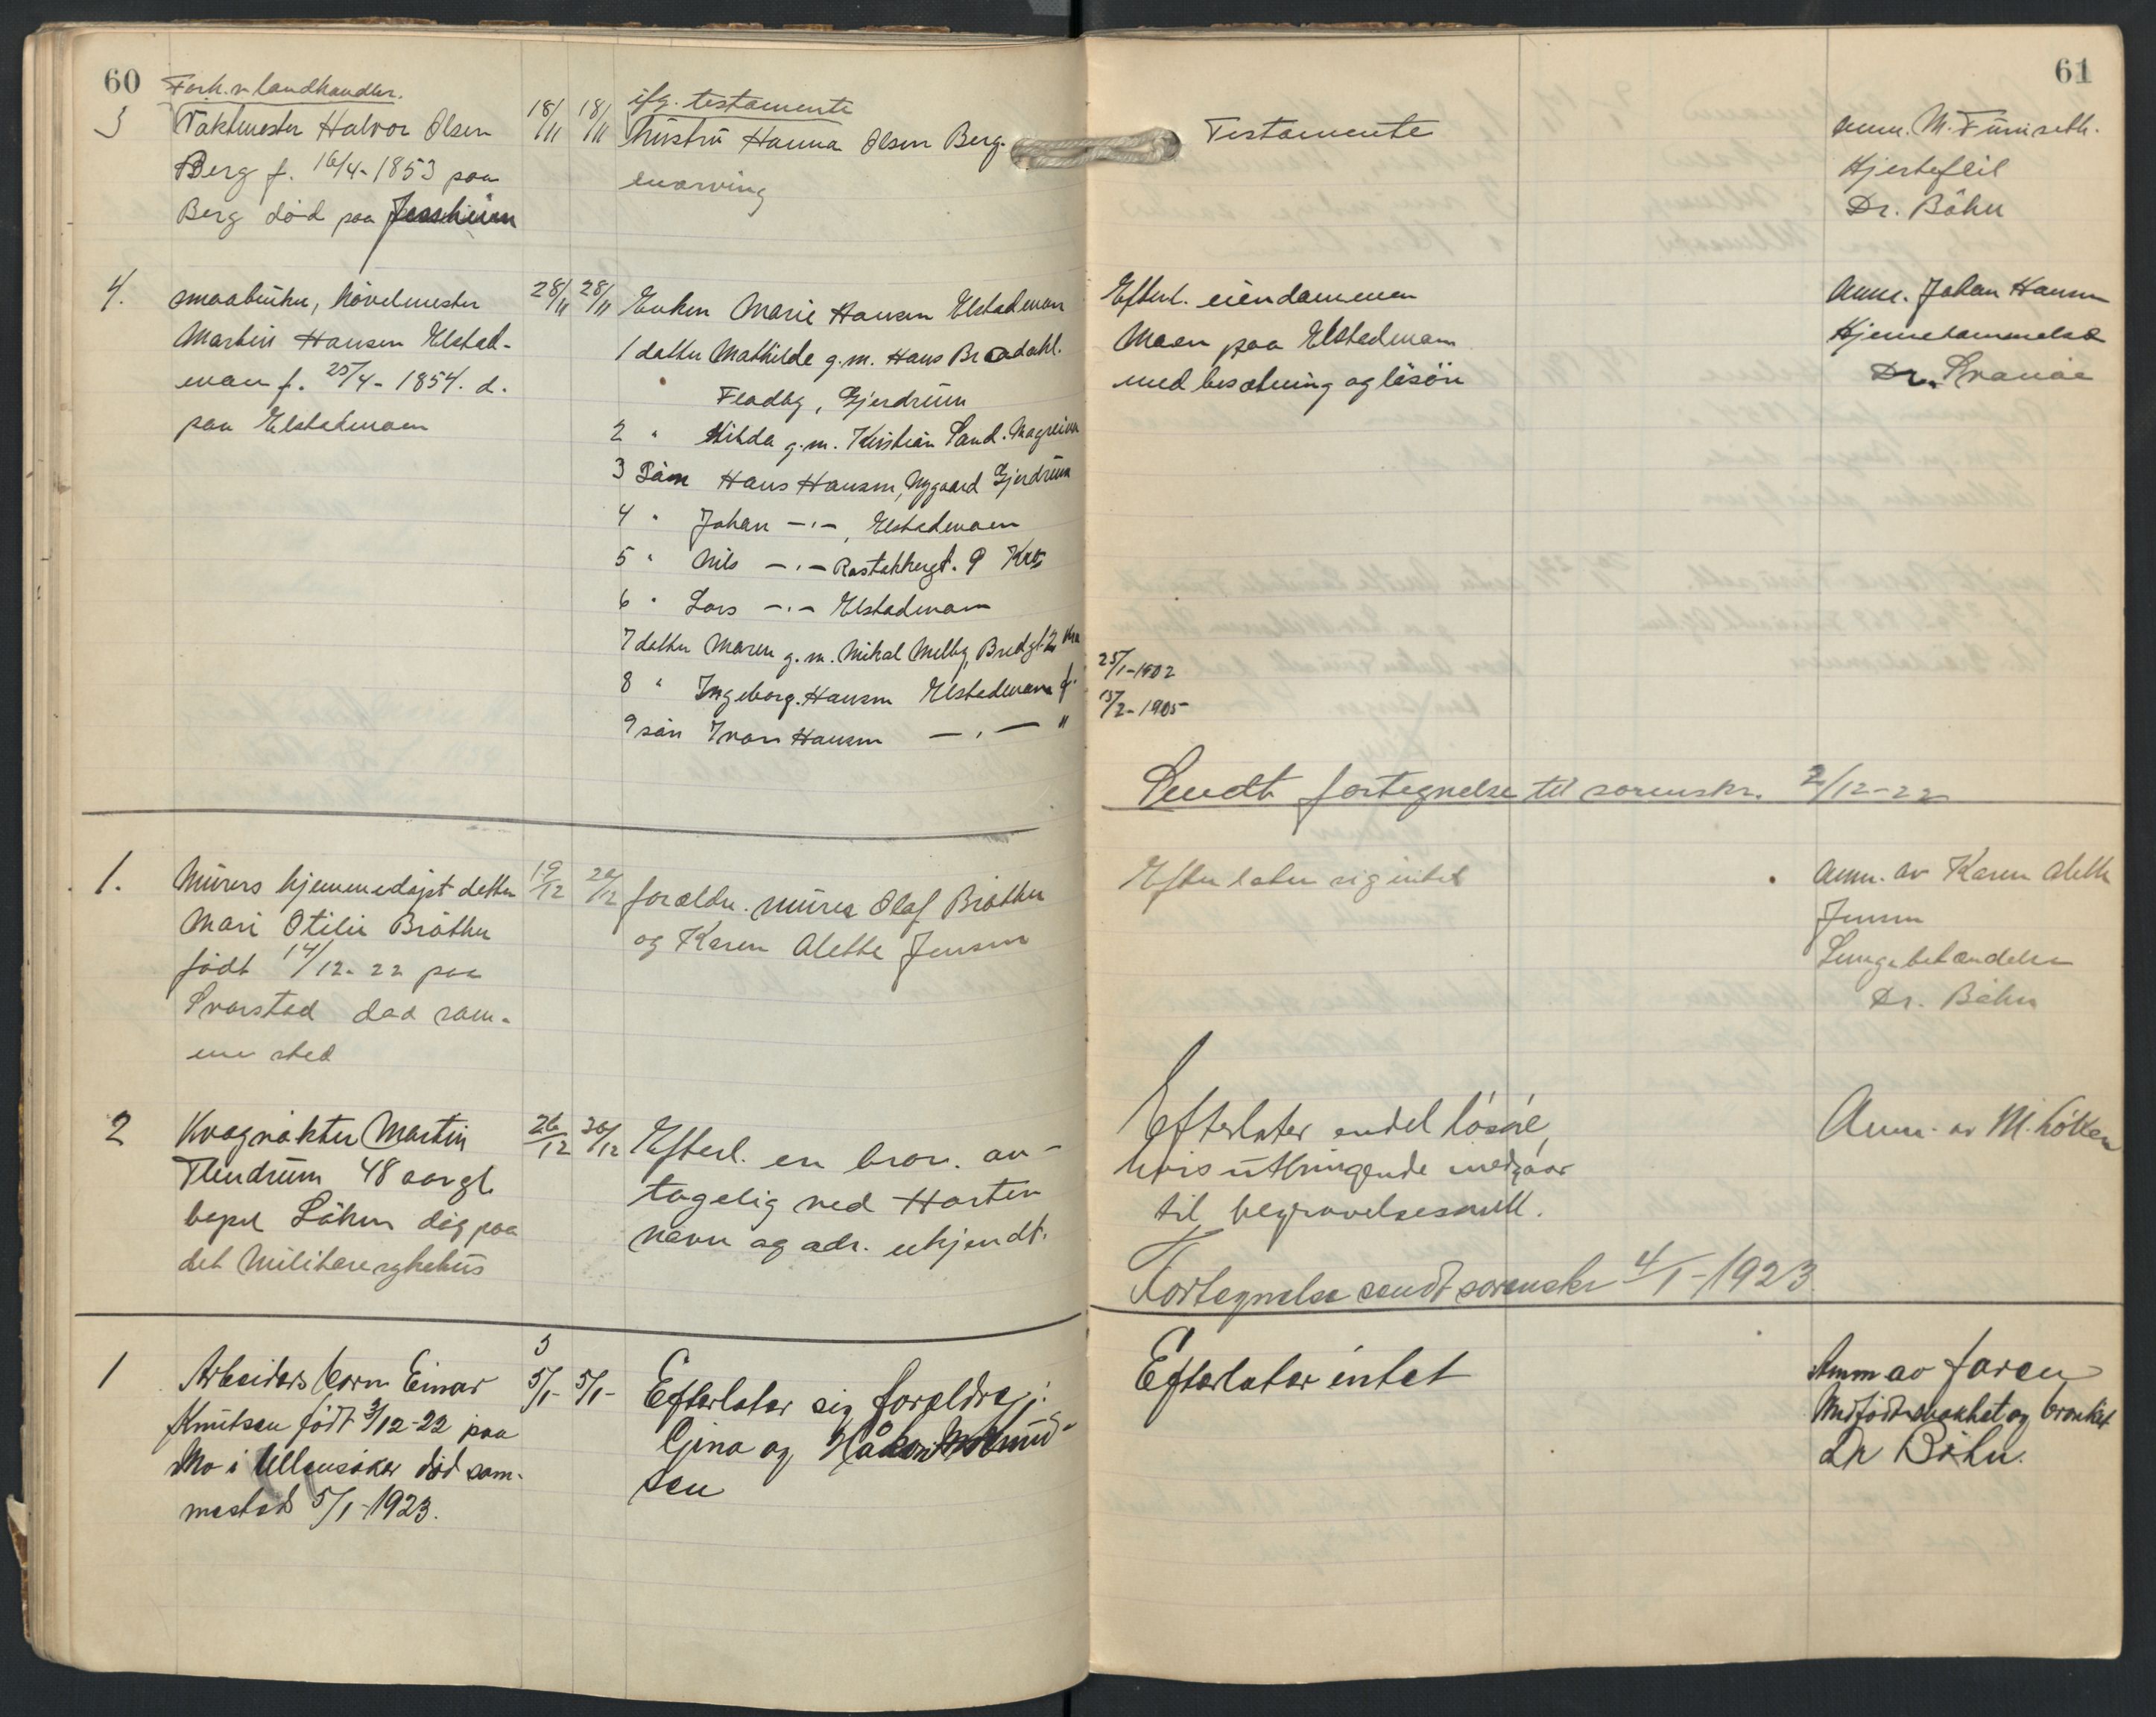 60
Forh. v landhandler.
3 Taktmester Halvor Olsen 18/11 18/11
Berg f. 16/4-1853 paa
Berg död paa Jessheim
ifg. testamente
hustru Hanna Olsen Berg.
enarving
4. smaabruker, hövelmester 28/11 28/11
Martin Hansen Elstad-
moen f. 25/4-1854. d.
paa Elstadmoen
Enken Marie Hansen Elstadmoen
1 datter Mathilde g.m. Hans Bradahl.
Fladby, Gjerdrum
2 " Hilda g.m. Kristian Sand. Mogreina
3 Sön Hans Hansen, Nygaard Gjerdrum
4 " Johan -"-, Elstadmoen
5 " Nils -"- Rostokkergt. 9 Kra
6 " Lars -"- Elstadmoen
7 datter Maren g.m. Mikal Melby, Bredgt. 2 Kra
8 " Ingeborg Hansen Elstadmoen f.
9 sön Ivar Hansen -"- "
1. Murers hjemmedöpt datter 19/12 20/12
Mari Otilie Bråthen
födt 14/12-22 paa
Svarstad död sam-
me sted
forældre. murer Olaf Bråthen
og Karen Alette Jensen
2 Kvægrökter Martin 26/12 30/12
Flendrum 48 aar gl.
bopel Löken dög paa
det Militære sykehus
Efterl. en bror. an-
tagelig ved Horten
navn og adr. ukjendt.
1 Arbeiders barn Einar 5/1- 5/1-
Knutsen født 3/12-22 paa
Mo i Ullensaker død sam-
mested 5/1-1923.
Efterlater sig forældre:
Gina og Håkon Knud-
sen
61
Testamente
anm. M. Furuseth.
Hjertefeil
Dr. Böhn
Efterl. eiendommen
Moen paa Elstadmoen
med besætning og lösöre
Anm. Johan Hansen
Hjernehammelse
Dr. Svanöe
25/1-1902
15/2-1905
Sendt fortegnelse til sorenskr. 2/12-22
Efterlater sig intet
Anm. av Karen Alette
Jensen
Lungebetændelse
Dr. Böhn
Efterlater endel lösöre,
hvis utbringende medgaar
til begravelsesomk.
Anm. av M. Löken
Fortegnelse sendt sorenskr 4/1-1923
Efterlater intet
Anm av faren
Medfødt svakhet og bronkit
Dr Böhn.